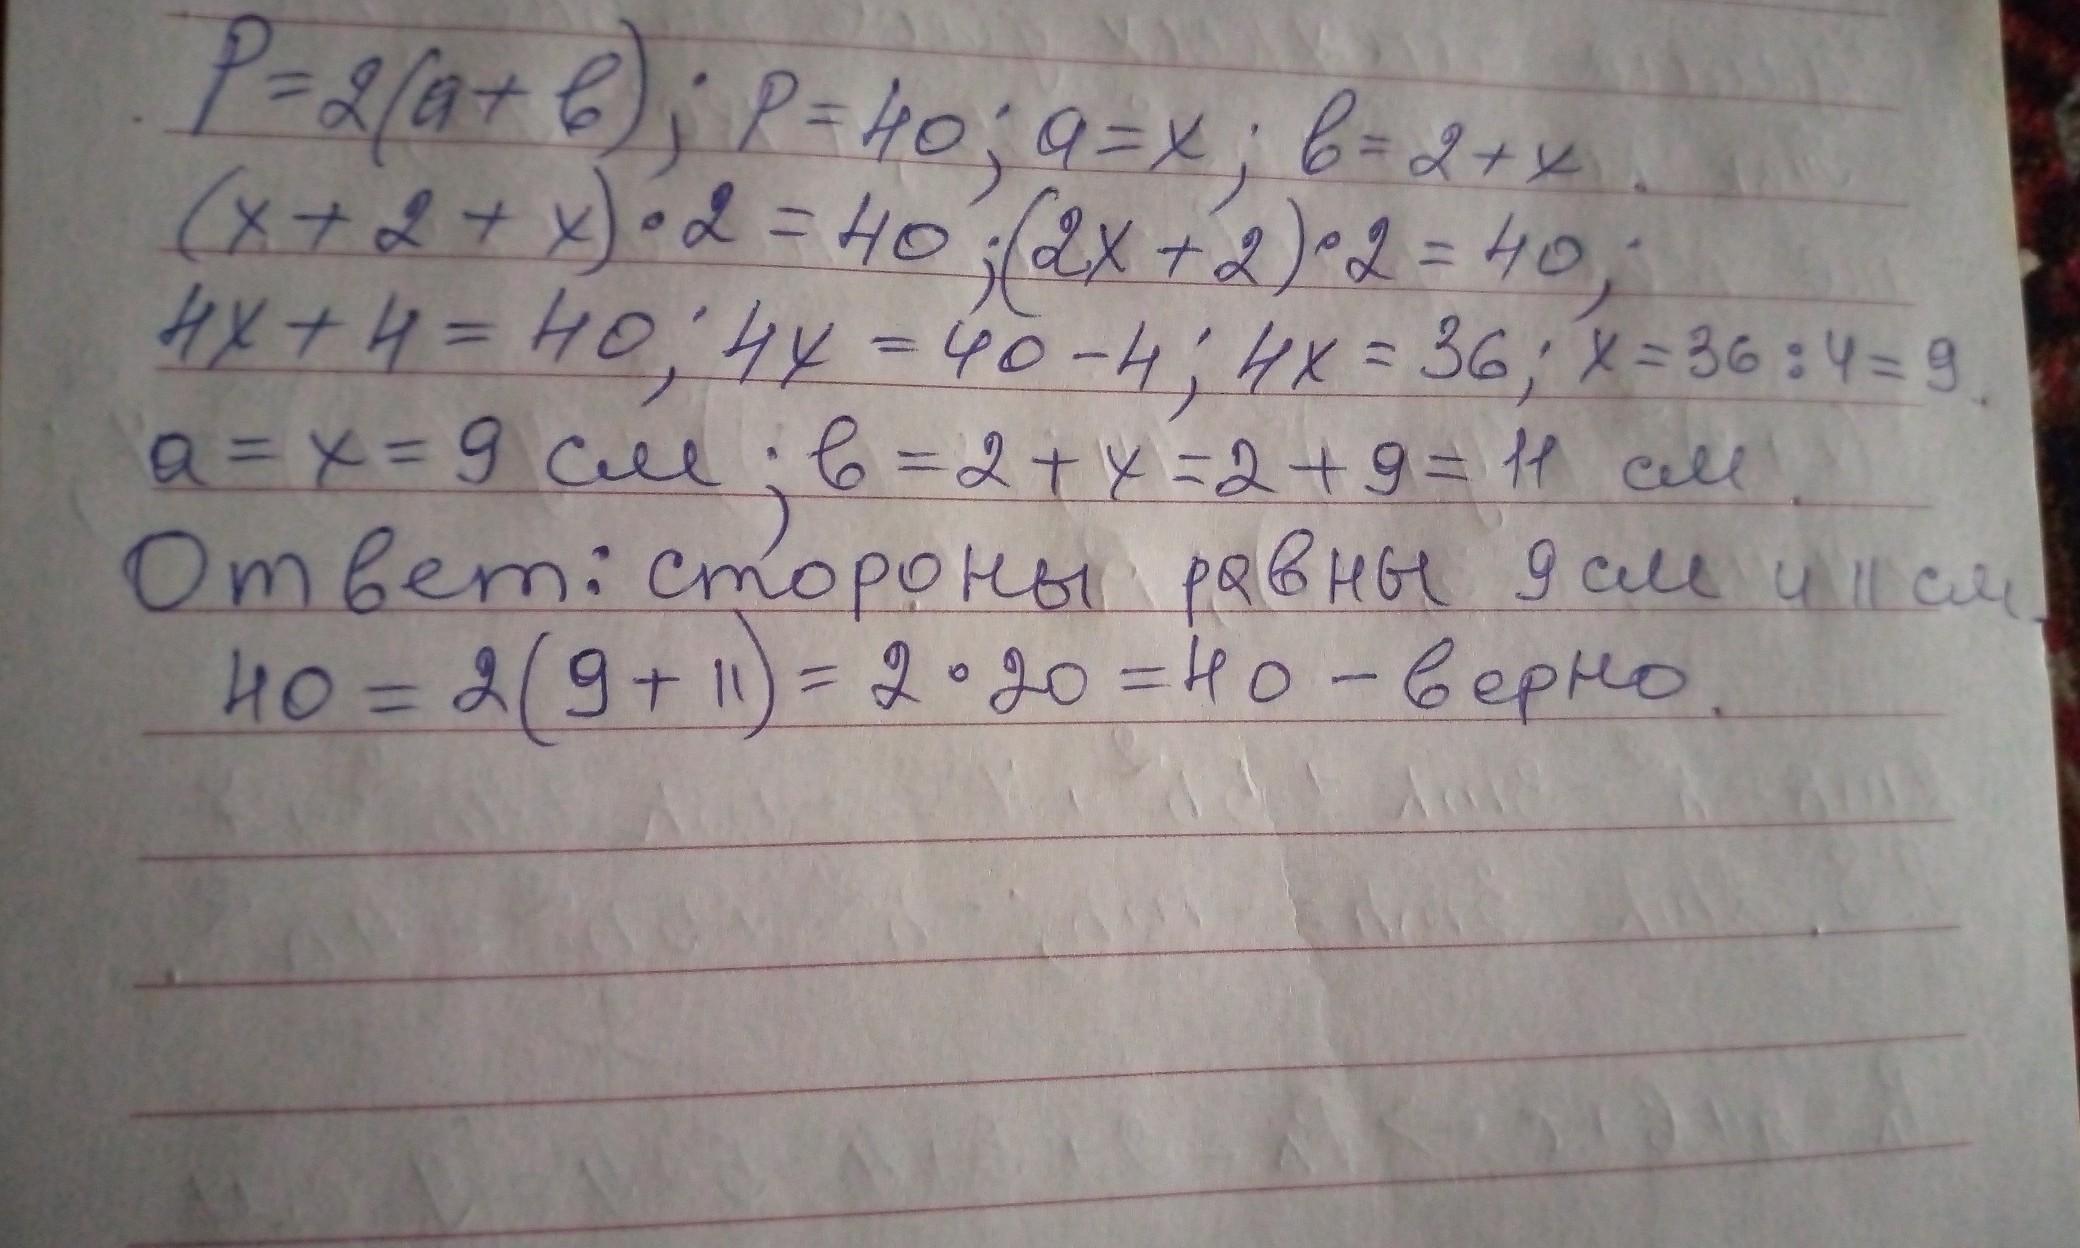 P=2(a+в); P=40; a=x; в=2+x.
(x+2+x)•2=40; (2x+2)•2=40;
4x+4=40; 4x=40-4; 4x=36; x=36:4=9.
a=x=9 см; в=2+x=2+9=11 см.
Ответ: стороны равны 9 см и 11 см.
40=2(9+11)=2•20=40-верно.